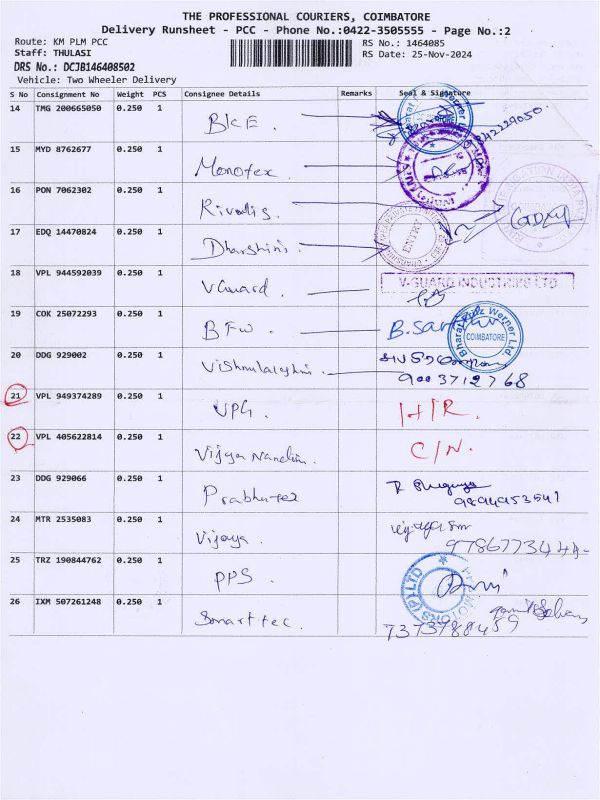 THE PROFESSIONAL COURIERS, COIMBATORE
Delivery Runsheet - PCC - Phone No.:0422-3505555 - Page No.:2
Route: KM PLM PCC
RS No.: 1464085
Staff: THULASI
RS Date: 25-Nov-2024
DRS No.: DCJB146408502
Vehicle: Two Wheeler Delivery
S No Consignment No Weight PCS Consignee Details Remarks Seal & Signature
14 TMG 200665050 0.250 1 BKE.
15 MYD 8762677 0.250 1 Monotex.
16 PON 7062302 0.250 1 Rivolis.
17 EDQ 14470824 0.250 1 Dharshini. ENTRY
18 VPL 944592039 0.250 1 VGuard. V-GUARD INDUSTRIES LTD
19 COK 25072293 0.250 1 BFW. Bharat Fritz Werner Ltd. COIMBATORE
20 DDG 929002 0.250 1 9003712768
21 VPL 949374289 0.250 1 VPG. H/R.
22 VPL 405622814 0.250 1 Vijya Nandini. C/N.
23 DDG 929066 0.250 1 Prabhutex 9894953541
24 MTR 2535083 0.250 1 Vijaya.
25 TRZ 190844762 0.250 1 PPS. MOTORS (P) LTD
26 IXM 507261248 0.250 1 Smarttec. 7373788459